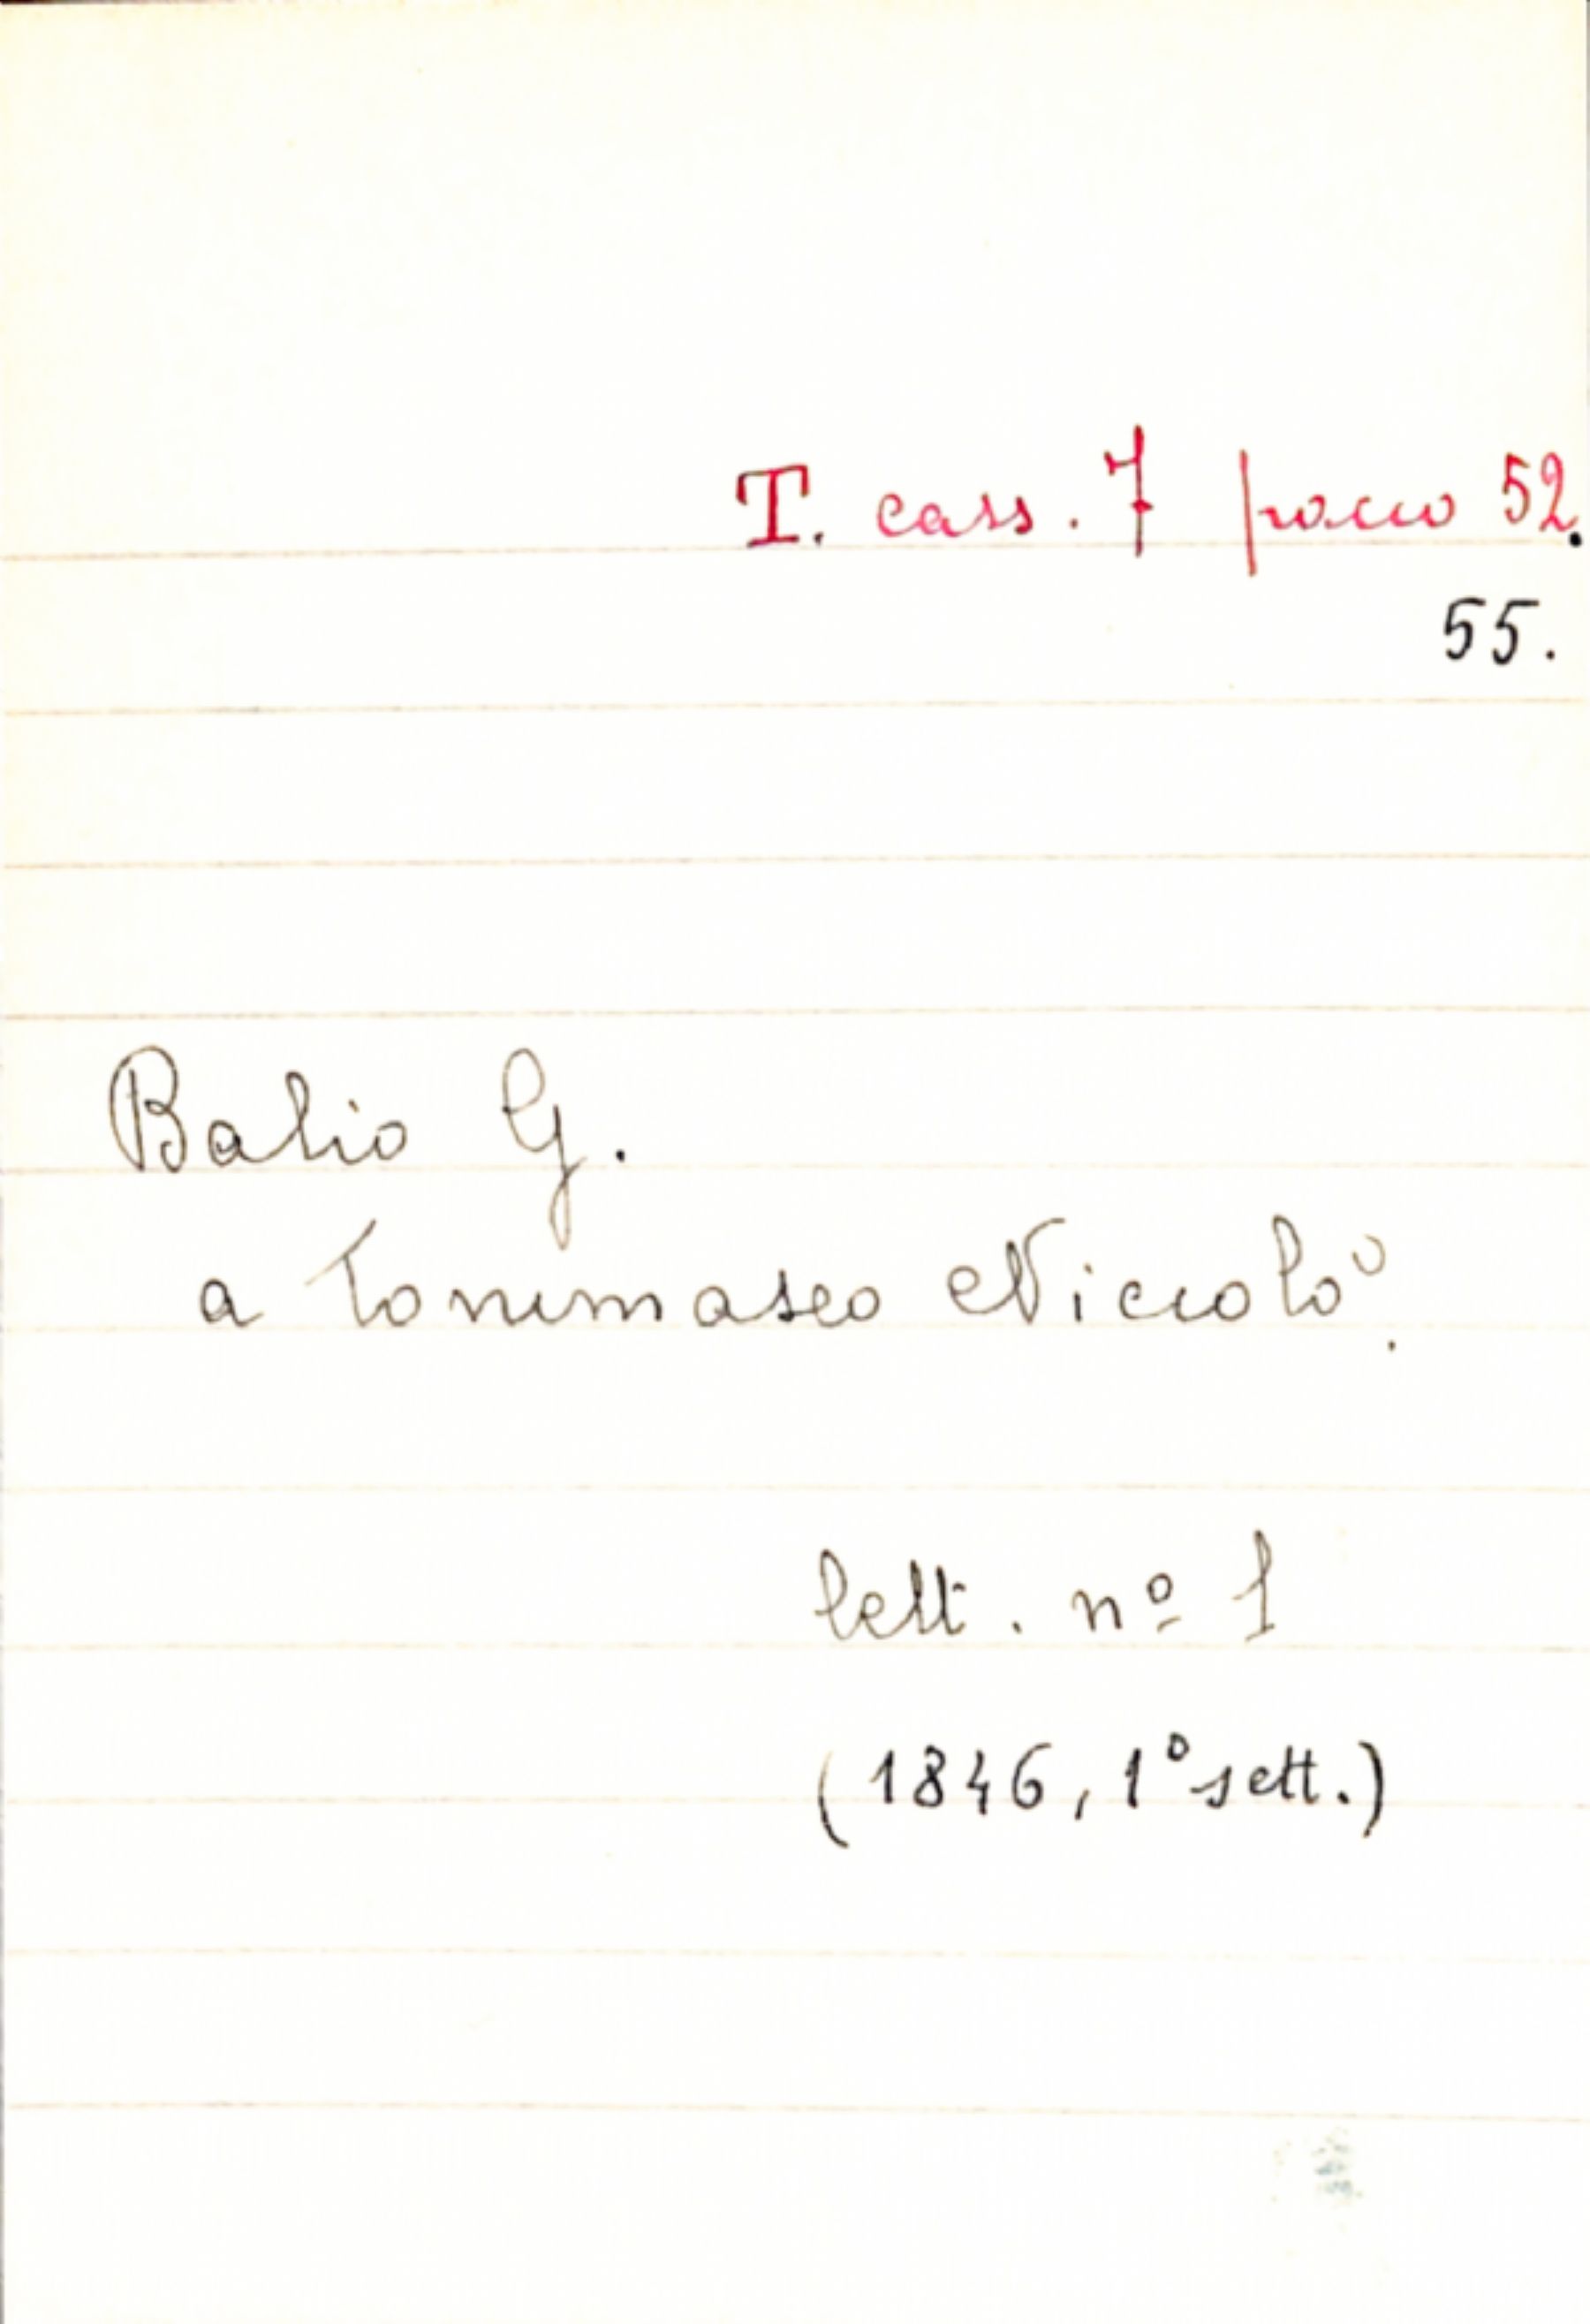 T. cass. 7 pacco 52.
55.
Balio G.
a Tommaseo Niccolò.
lett. nº 1
(1846, 1º sett.)